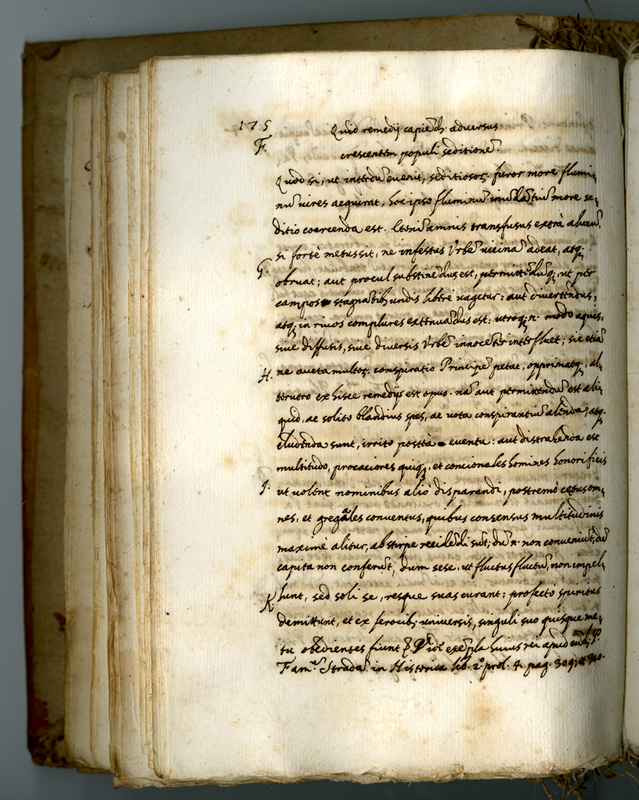 175
F. Quid remedij capiedū adversus
crescentem populi seditionē.
Quod si, ut interdū evenit, seditiosoꝝ furor more flumi„
nū vires acquirat, hoc ipso fluminū inūdātiū more se„
ditio coercenda est. Uteni amnis transfusus extrà alveū
G. si fortè metus sit, ne infestus Urbē vicinā adeat, atq;
obruat; aut procul substinēdus est, permittēdūq;, ut per
campos stagnātibus undis liberè vagetur: aut divertēdus,
atq; in rivos complures extenuādus est; utroq; n. modo aquis,
sive diffusis, sive diversis Urbē innocēter interfluet; sic etiā
H. ne aucta multoꝝ conspiratio Principē petat, opprimatq;, al„
terutro ex hisce remedijs est opus. nā aut permittendū est ali„
quid, ac solito blandius spes, ac vota conspirantiū alenda, atq;
eludenda sunt, irrito posteà eventu: aut distrahenda est
multitudo, procaciores quiq;, et concionales homines honorificis
I. ut volēt nominibus alio disparandi, postremò cętus om„
nes, et gregales conventus, quibus consensus multitudinis
maximè alitur, ab stirpe recidēdi sūt; dū n. non conveniūt, dū
capita non conferūt, dum sese, ut fluctus fluctū, non impel„
K lunt, sed soli se, resque suas curant: profecto spiritus
demittunt, et ex ferocibꝰ universis, singuli suo quisque me„
tu obedientes fiunt. Vide exēpla huius rei apud eund. P.
Famū Strada. in Historica lib. 2.º prol. 4. pag. 309. et 310.